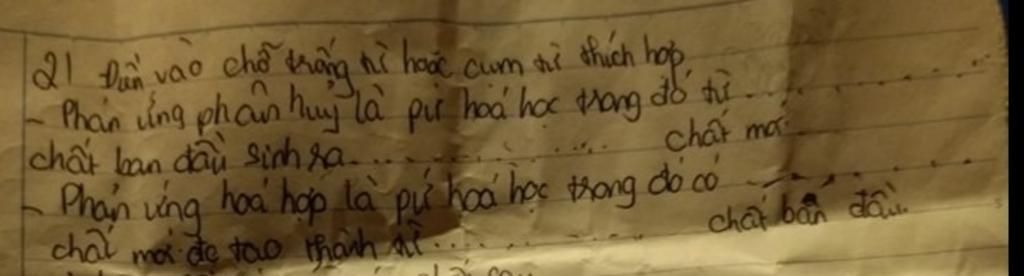 2) Điền vào chỗ trống từ hoặc cụm từ thích hợp
- Phản ứng phân huỷ là pứ hoá học trong đó từ ...........
chất ban đầu sinh ra .................. chất mới
- Phản ứng hoá hợp là pứ hoá học trong đó có ...........
chất mới đc tạo thành từ .............. chất ban đầu.